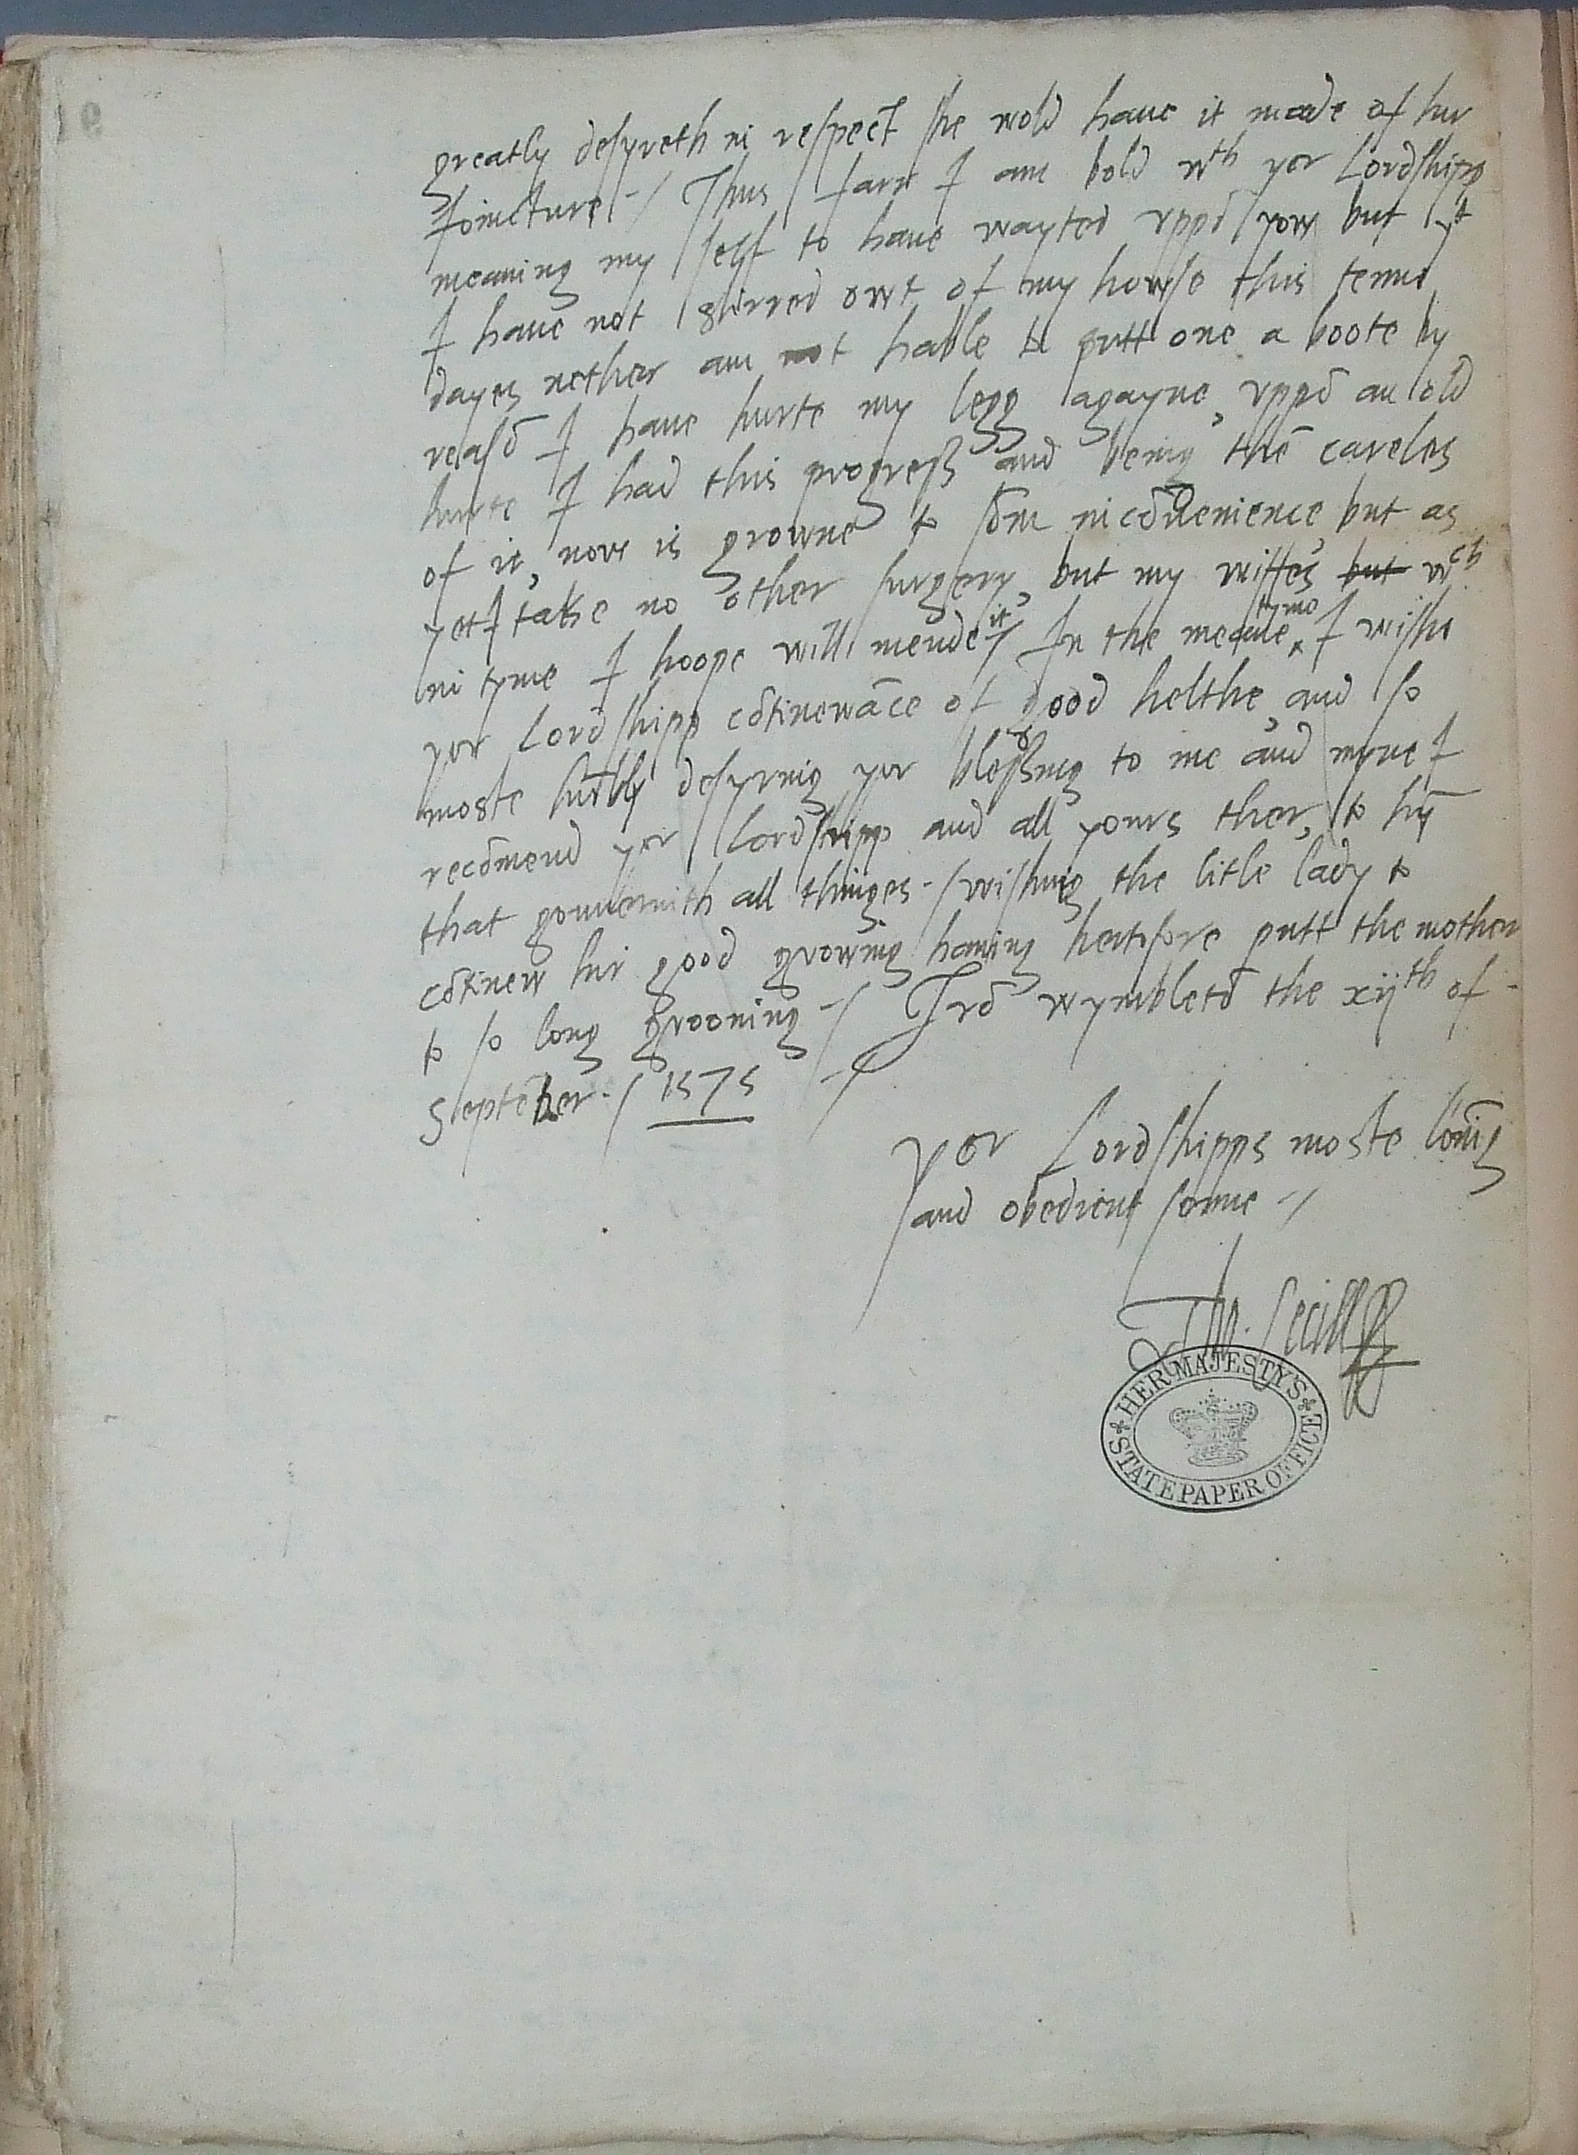 greatly desyreth in respect she wold haue it made of hir
Ioincture -/ Thus farr I am bold wth yor Lordshipp
meaning my self to haue wayted vppō yow but yt
I haue not stirred owt of my howse this tenne
dayes nether am not hable to putt one a boote by
reasō I haue hurte my legg agayne, vppō an old
hurte I had this progress and being thē careles
of it, now is growne to sōm incōuenience, but as
yet I take no other surgery, but my wiffes but wch
in tyme I hoope will mende it / In the meane tyme I wishe
yor Lordshipp cōtinewāce of good helthe, and so
moste hūbly desyring yor blessing to me and myne I
recōmend yor Lordshipp and all yours ther, to hȳ
that gouuernith all thinges -/ wishing the litle lady to
cōtinew hir good growing, hauing hertofore putt the mother
to so long grooning -/ Frō wymbletō the xijth of -
Septēber -/ 1575 -/
yor Lordshipps moste louīg
and obedient sonne -/
Tho. Cecill
HER MAJESTY'S
STATE PAPER OFFICE